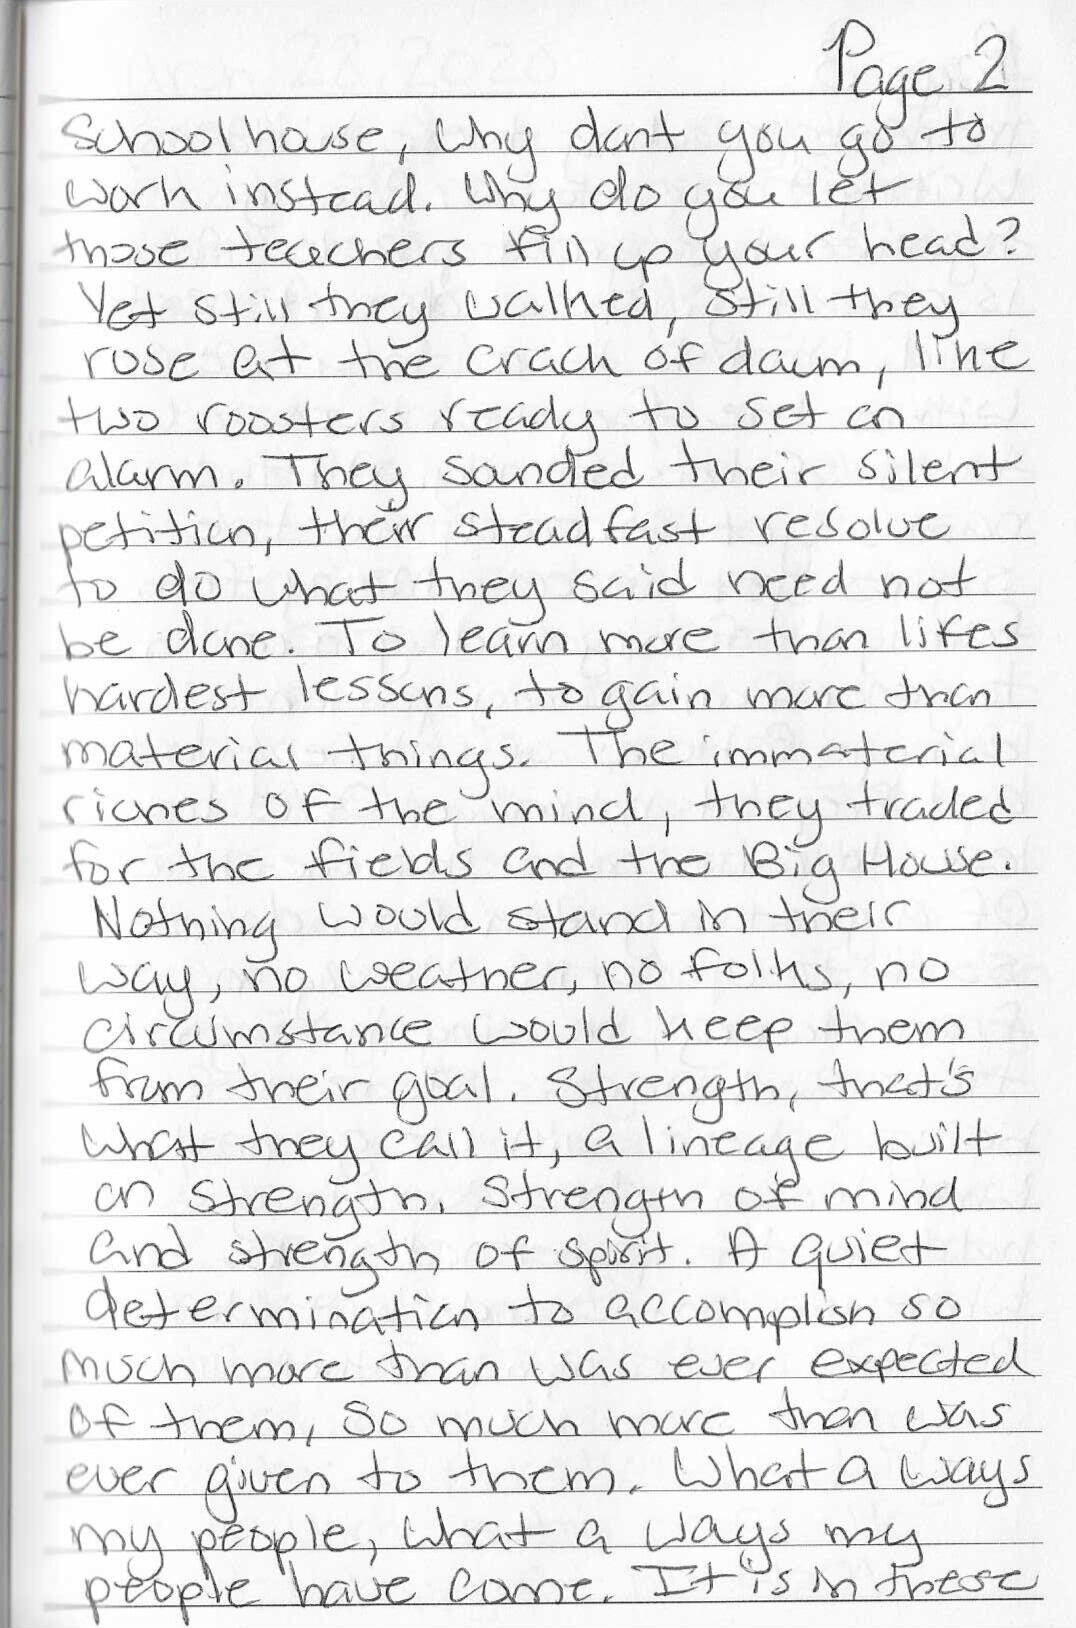 Page 2
Schoolhouse, Why dont you go to
work instead. Why do you let
those teachers fill up your head?
Yet still they walked, still they
rose at the crack of dawn, like
two roosters ready to set an
alarm. They sounded their silent
petition, their steadfast resolve
to do what they said need not
be done. To learn more than lifes
hardest lessons, to gain more than
material things. The immaterial
riches of the mind, they traded
for the fields and the Big House.
Nothing would stand in their
way, no weather, no folks, no
circumstance would keep them
from their goal. Strength, that's
what they call it, a lineage built
on strength. Strength of mind
and strength of spirit. A quiet
determination to accomplish so
much more than was ever expected
of them, so much more than was
ever given to them. What a ways
my people, what a ways my
people have come. It is in these